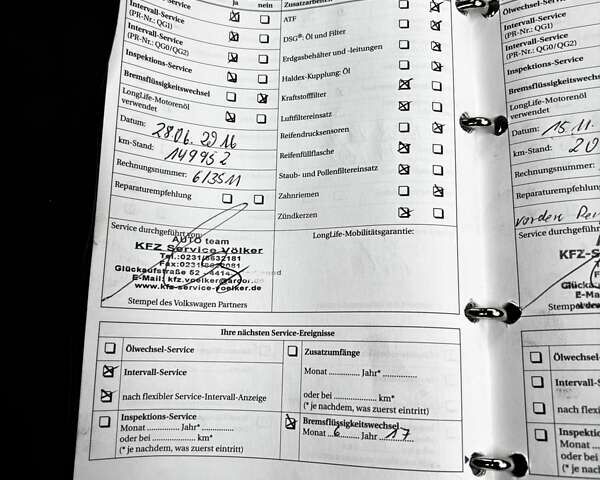 ja nein
Intervall-Service
(PR-Nr.: QG1)
Intervall-Service
(PR-Nr.: QG0/QG2)
Inspektions-Service
Bremsflüssigkeitswechsel
LongLife-Motorenöl
verwendet
Datum: 28.06.2016
km-Stand: 149952
Rechnungsnummer: 613511
Reparaturempfehlung
Service durchgeführt von:
AUTO team
KFZ Service Völker
Tel.:0231/8632181
Glückaufstraße 52
E-Mail: kfz.voelker@arcor.de
www.kfz-service-voelker.de
Stempel des Volkswagen Partners
Zusatzarbeiten
ATF
DSG®: Öl und Filter
Erdgasbehälter und -leitungen
Haldex-Kupplung: Öl
Kraftstofffilter
Luftfiltereinsatz
Reifendrucksensoren
Reifenfüllflasche
Staub- und Pollenfiltereinsatz
Zahnriemen
Zündkerzen
LongLife-Mobilitätsgarantie:
Ihre nächsten Service-Ereignisse
Ölwechsel-Service
Intervall-Service
nach flexibler Service-Intervall-Anzeige
Inspektions-Service
Monat ............... Jahr* ...............
oder bei ............... km*
(* je nachdem, was zuerst eintritt)
Zusatzumfänge
Monat ............... Jahr* ...............
oder bei ............... km*
(* je nachdem, was zuerst eintritt)
Bremsflüssigkeitswechsel
Monat 6 Jahr 17
Ölwechsel-Service
Intervall-Service
(PR-Nr.: QG1)
Intervall-Service
(PR-Nr.: QG0/QG2)
Inspektions-Service
Bremsflüssigkeitswechsel
LongLife-Motorenöl
verwendet
Datum: 15.11.
km-Stand: 20
Rechnungsnummer:
Reparaturempfehlung
Service durchgeführt
KFZ-S
Tel.
Glücka
E-Ma
Stempel
Ölwechsel-
Intervall-S
nach flexi
Inspektion
Monat ....
oder bei ...
(* je nachde